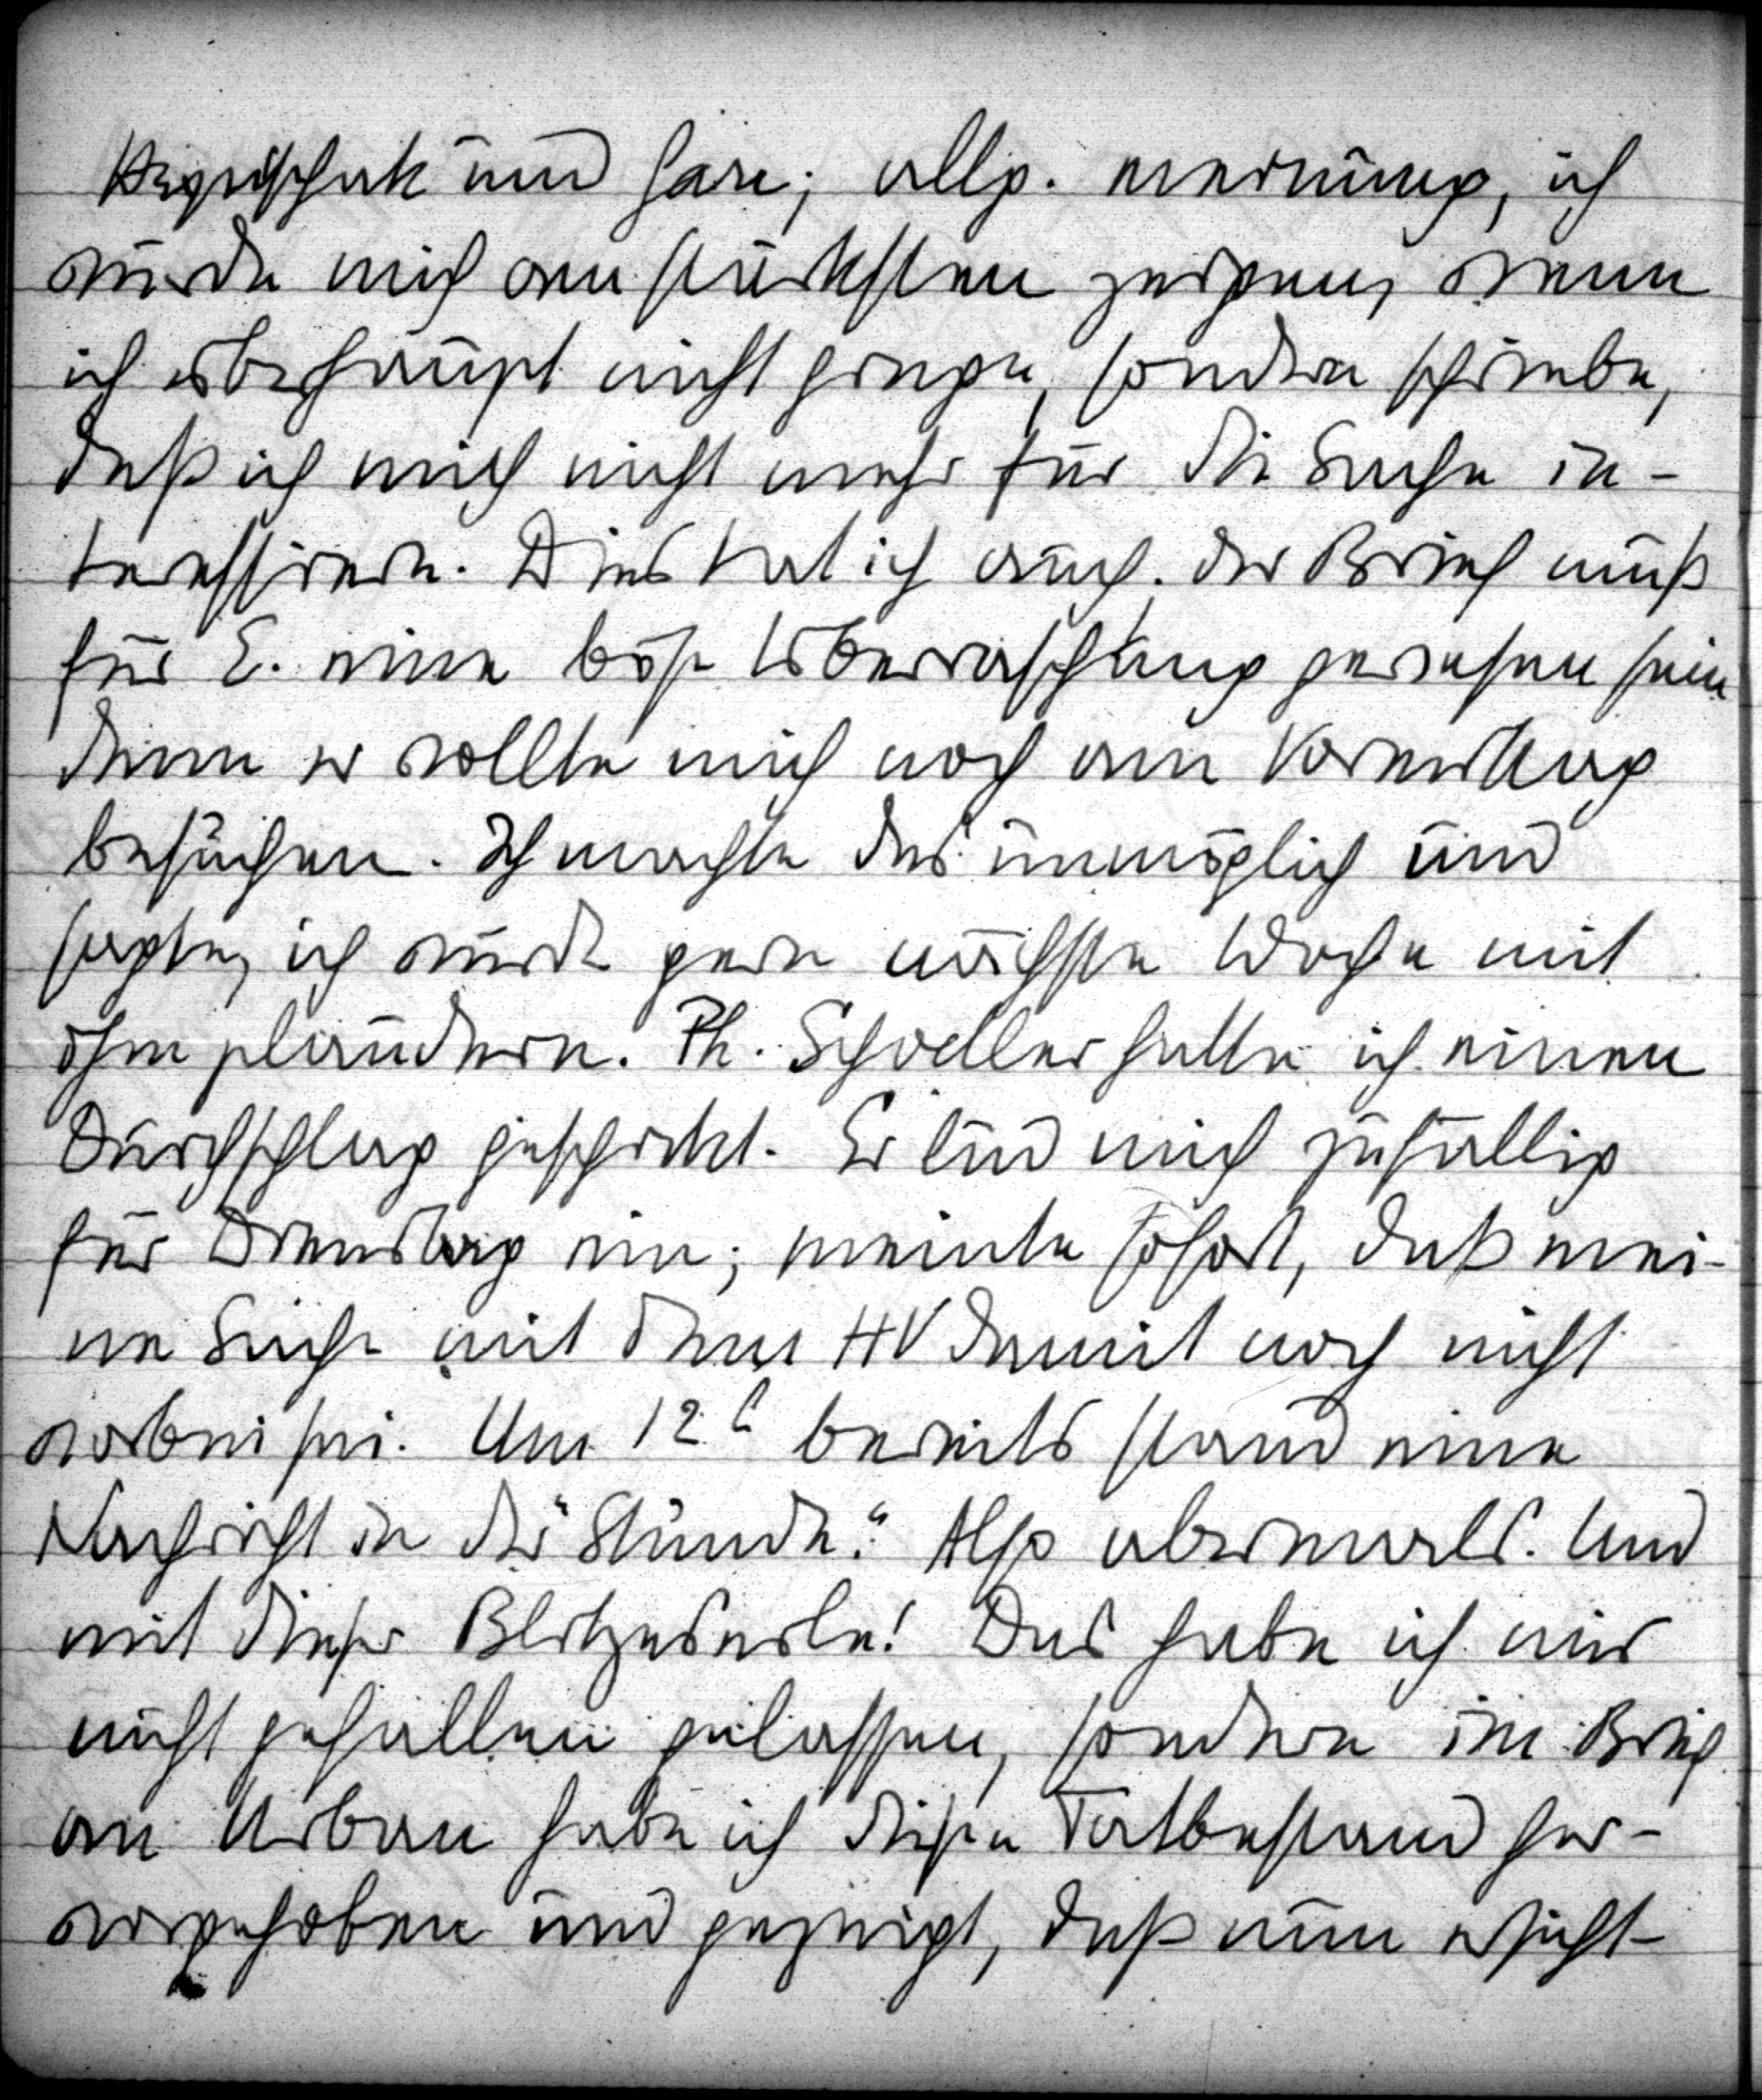 und Hare; allg. meinung, ich
würde mich am stärksten zeigen, wenn
ich überhaupt nicht ginge, sondern schriebe,
daß ich mich nicht mehr für die Sache in-
teressiere. Dies tat ich auch. Der Brief muß
für E. eine böse Überraschung gewesen sein
denn er wollte mich noch am Vormittag
besuchen. Ich machte das unmöglich und
sagte, ich würde gern nächste Woche mit
ihm plaudern. Ph. Schoeller hatte ich einen
Durchschlag geschickt. Er lud mich zufällig
für Dienstag ein; meinte sofort, daß mei-
ne Sache mit dem HV damit noch nicht
vorbei sei. Um 12h bereits stand eine
Nachricht in der "Stunde." Also abermals. Und
mit dieser Blitzeseile! Das habe ich mir
nicht gefallen gelassen, sondern im Brief
an Urban habe ich diesen Tatbestand her-
vorgehoben und gezeigt, daß nun ersicht-